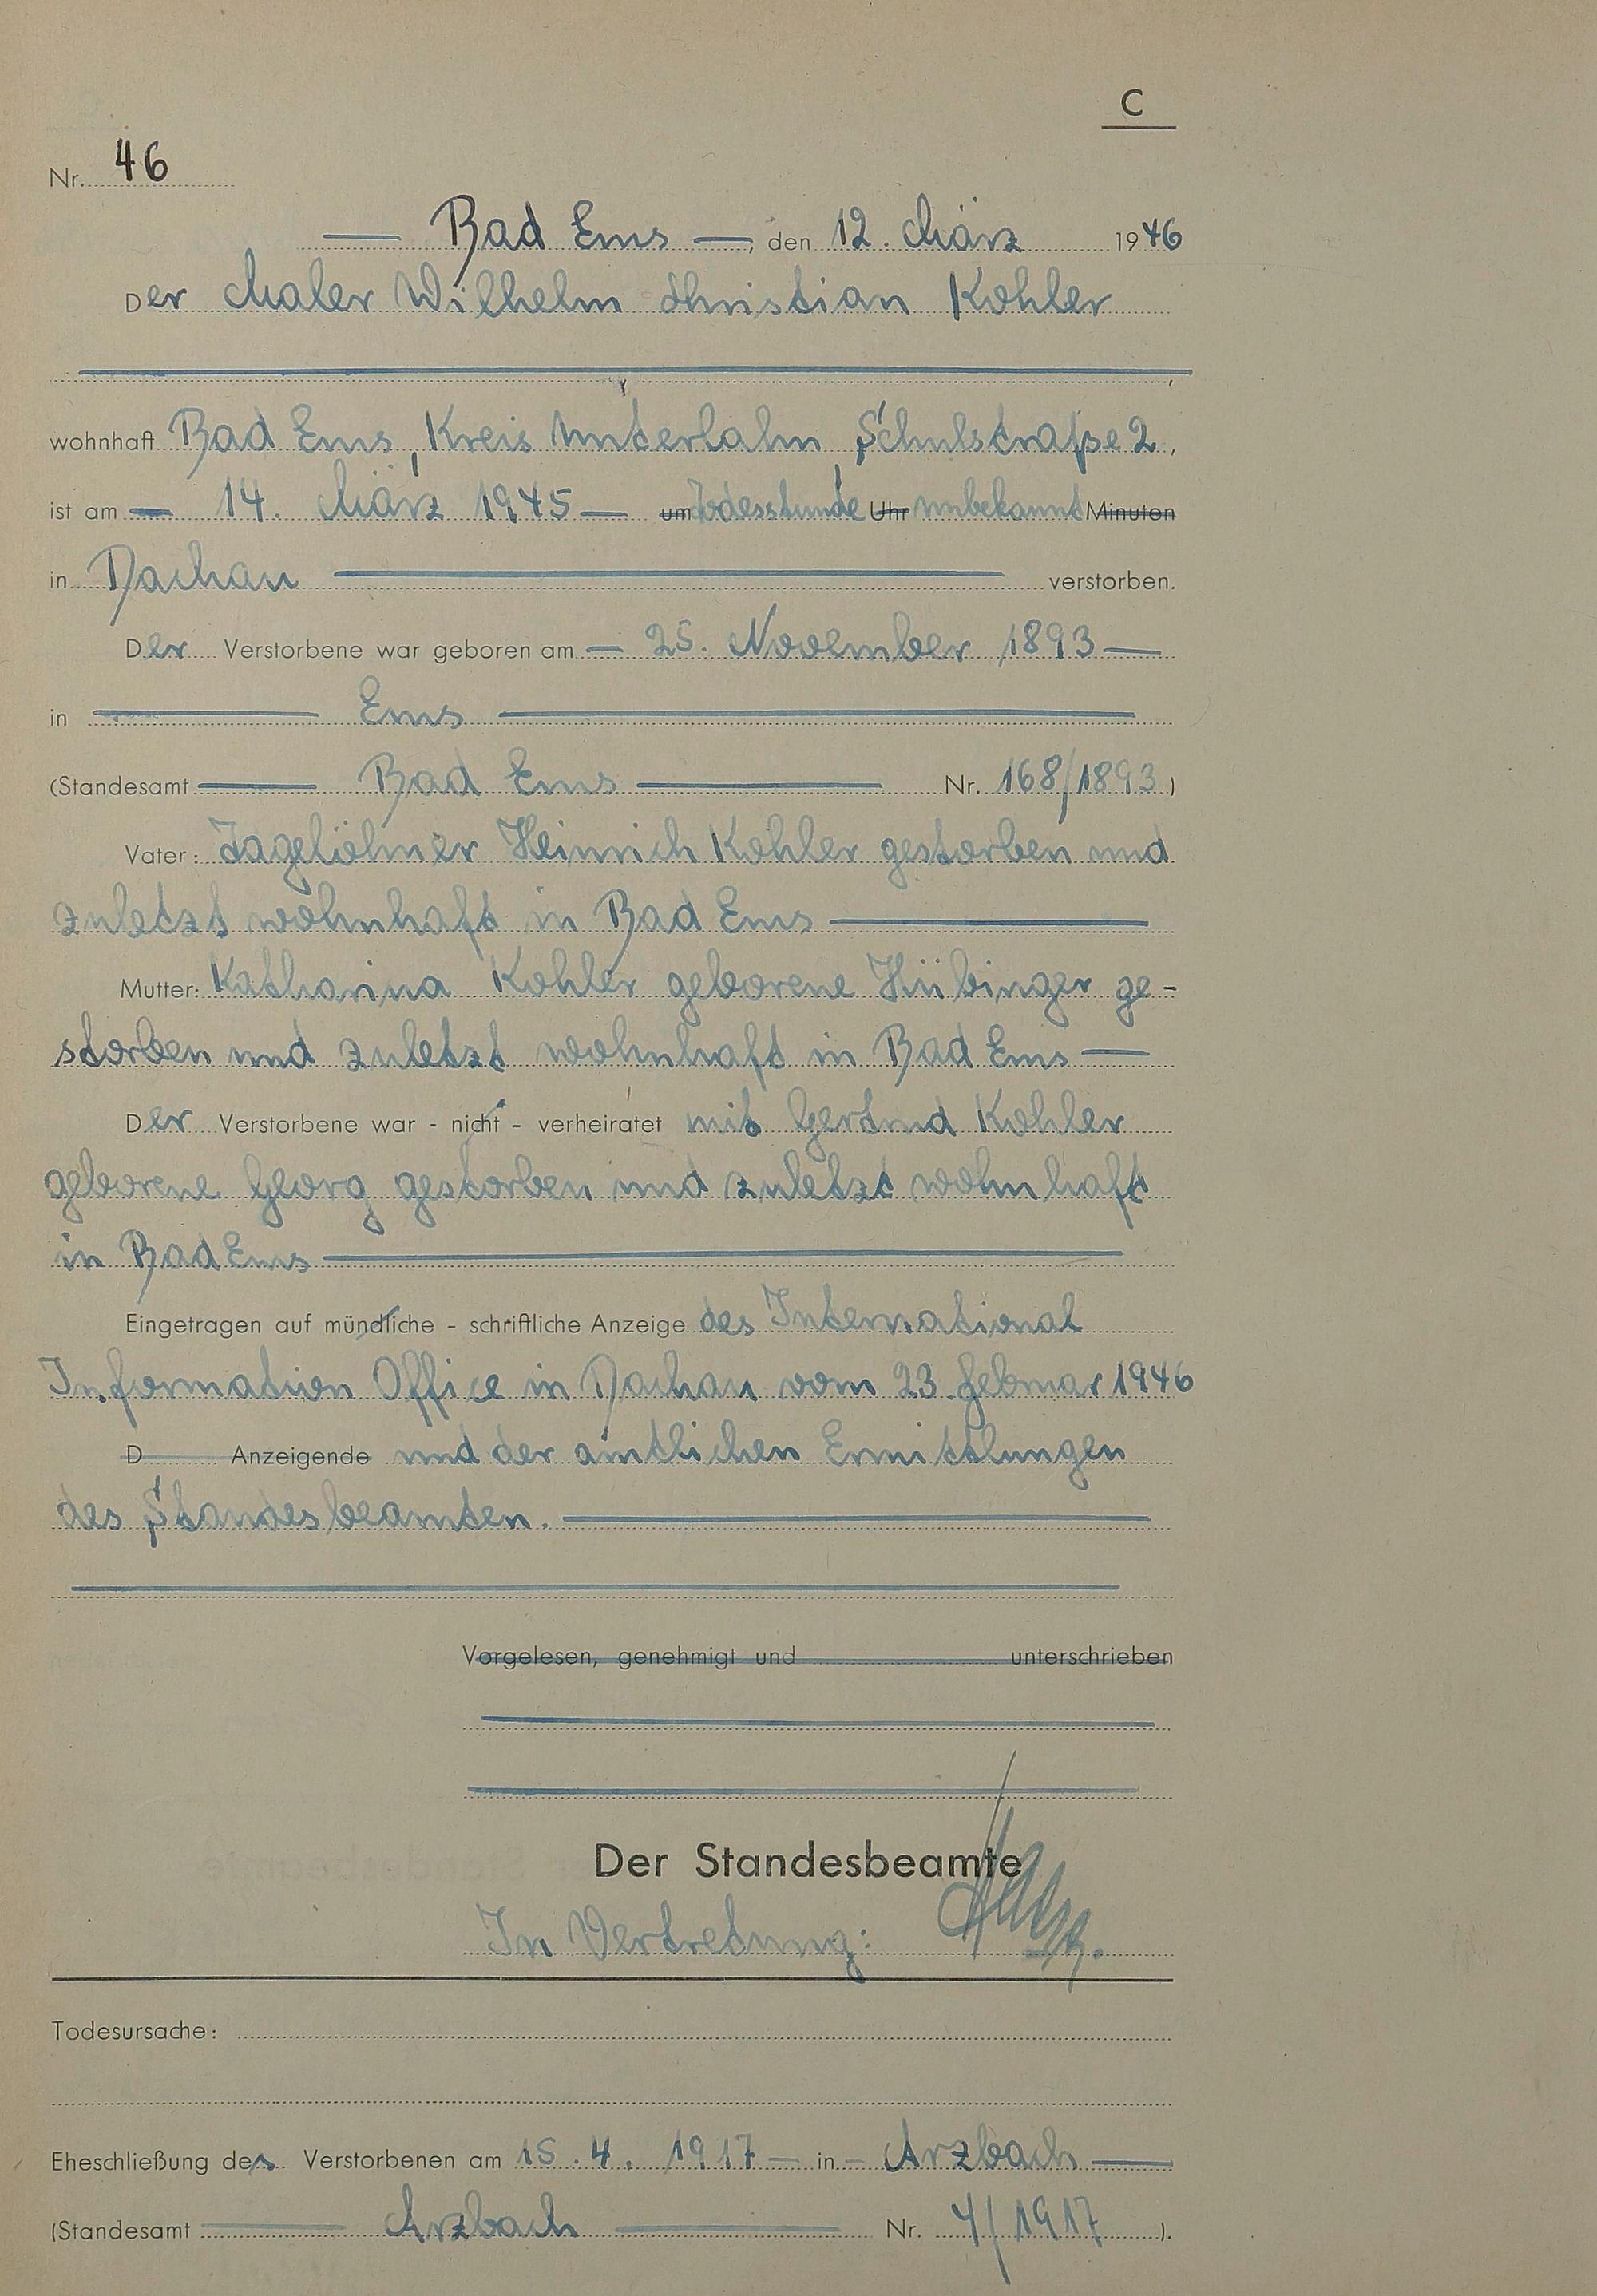 C
Nr. 46
— Bad Ems —, den 12. März 1946
Der Maler Wilhelm Christian Kohler
wohnhaft Bad Ems, Kreis Unterlahn, Schulstraße 2,
ist am — 14. März 1945 — um Todesstunde Uhr unbekannt Minuten
in Dachau — verstorben.
Der Verstorbene war geboren am — 25. November 1893 —
in — Ems —
(Standesamt — Bad Ems — Nr. 168/1893)
Vater: Tagelöhner Heinrich Kohler gestorben und
zuletzt wohnhaft in Bad Ems —
Mutter: Katharina Kohler geborene Hübinger ge-
storben und zuletzt wohnhaft in Bad Ems —
Der Verstorbene war - nicht - verheiratet mit Gertrud Kohler
geborene Georg gestorben und zuletzt wohnhaft
in Bad Ems —
Eingetragen auf mündliche - schriftliche Anzeige des International
Information Office in Dachau vom 23. Februar 1946
D Anzeigende und der amtlichen Ermittlungen
des Standesbeamten. —
Vorgelesen, genehmigt und unterschrieben
Der Standesbeamte
In Vertretung:
Todesursache:
Eheschließung des Verstorbenen am 15.4.1917 — in — Arzbach —
(Standesamt — Arzbach — Nr. 4/1917).